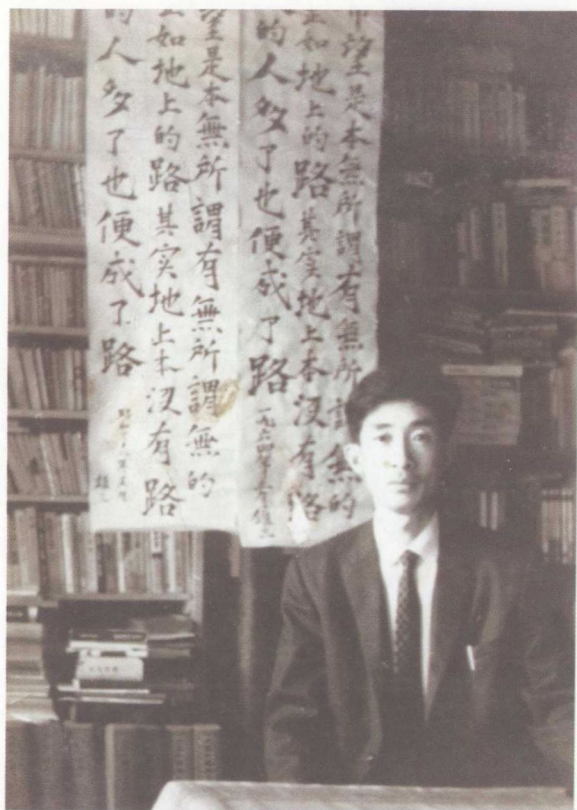 希望是本無所謂有無所謂無的
正如地上的路其实地上本沒有路
的人多了也便成了路
一九六四年春
望是本無所謂有無所謂無的
如地上的路其实地上本沒有路
的人多了也便成了路